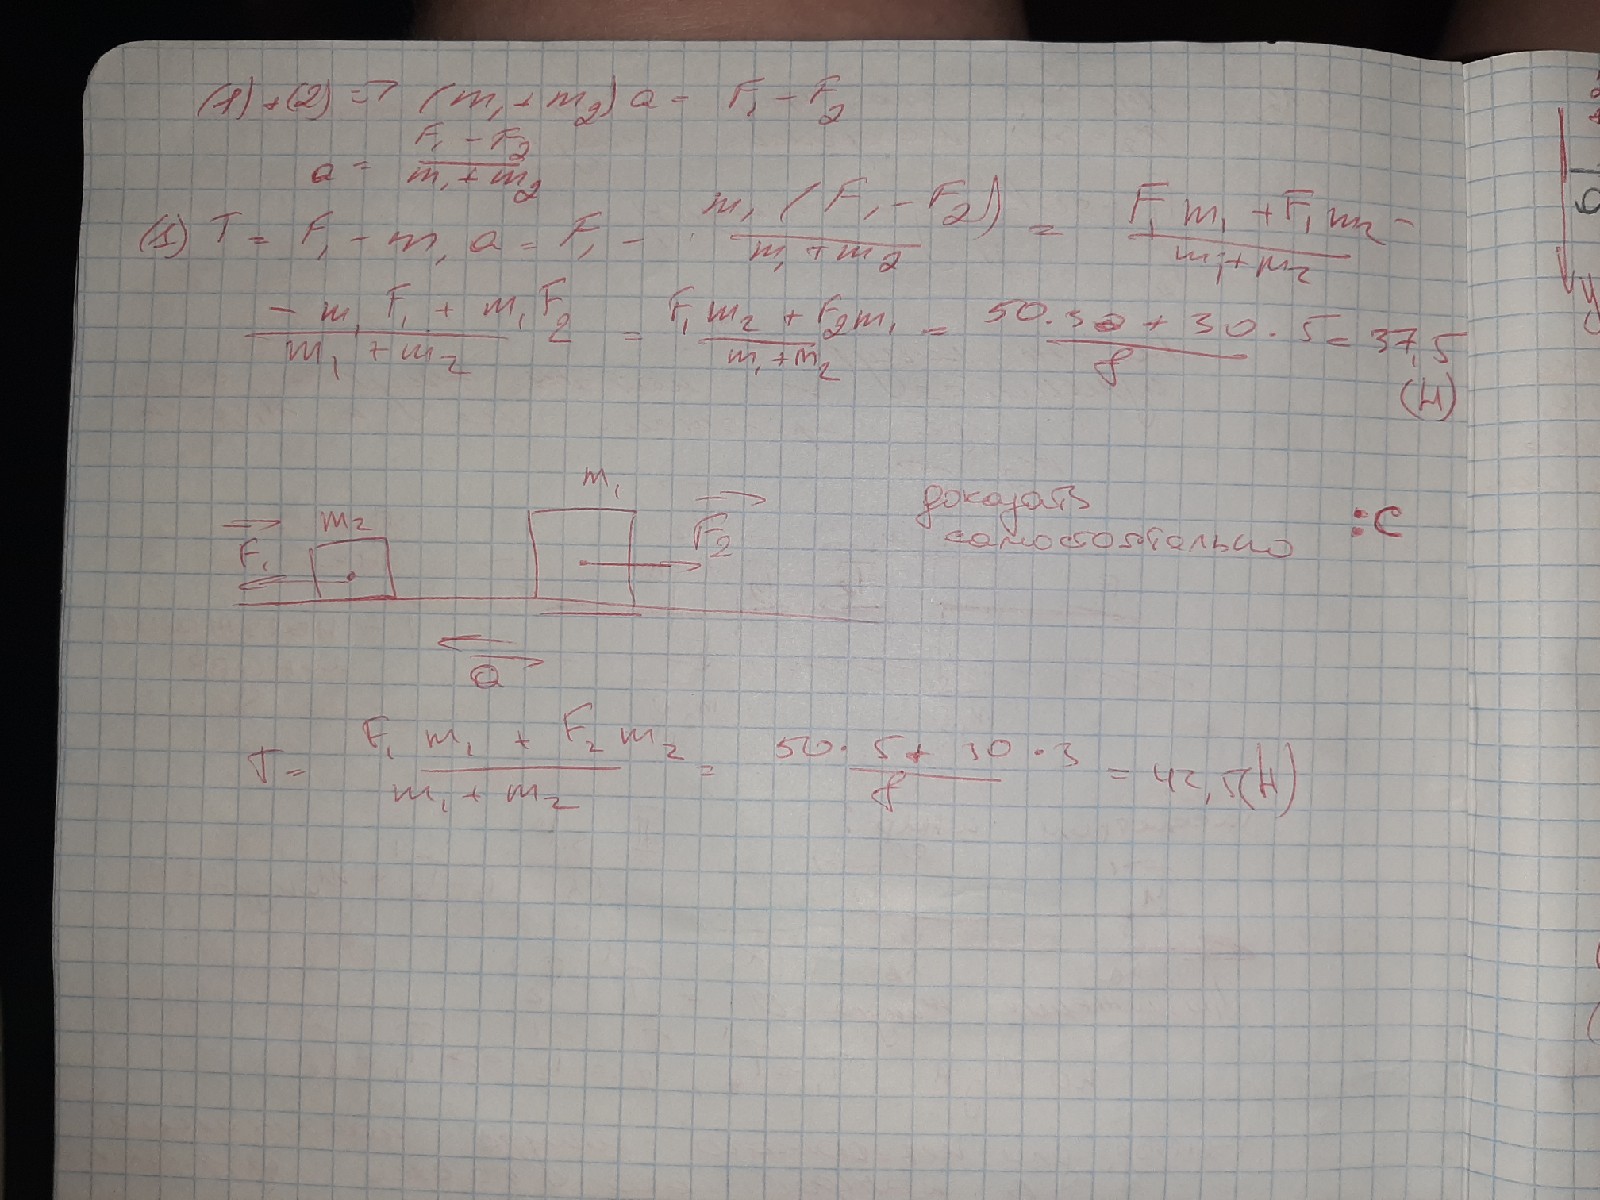 (1)+(2) => (m₁ + m₂) a = F₁ - F₂
a = (F₁ - F₂)/(m₁ + m₂)
(1) T = F₁ - m₁ a = F₁ - m₁ (F₁ - F₂)/(m₁ + m₂) = (F₁ m₁ + F₁ m₂ -)/(m₁ + m₂)
(- m₁ F₁ + m₁ F₂)/(m₁ + m₂) = (F₁ m₂ + F₂ m₁)/(m₁ + m₂) = (50 · 30 + 30 · 5)/8 = 37,5
(Н)
m₂ m₁
F₁ F₂
доказать
самостоятельно :С
a
T = (F₁ m₁ + F₂ m₂)/(m₁ + m₂) = (50 · 5 + 30 · 3)/8 = 42,5(Н)